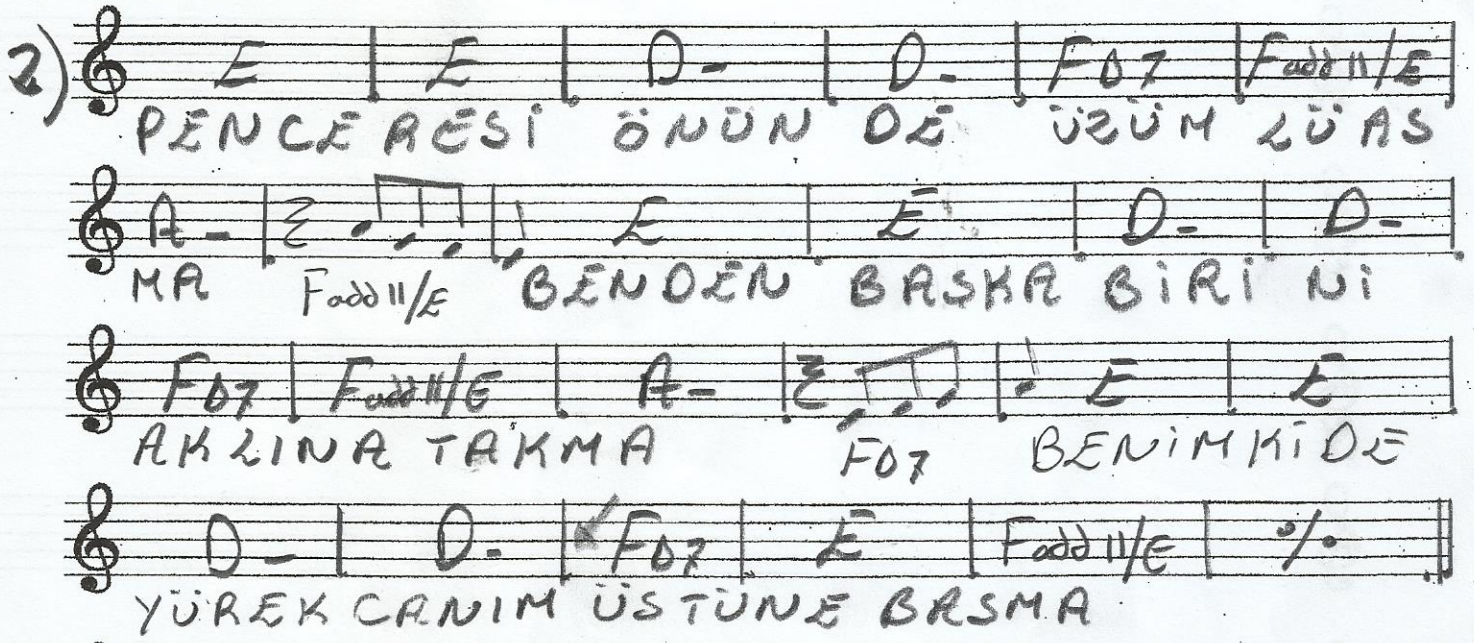 2) E E D- D- FΔ7 Fadd11/E
PENCERESİ ÖNÜN DE ÜZÜM LÜ AS
A- E
MA Fadd11/E BENDEN BASKA BİRİ Nİ
E E D- D-
FΔ7 Fadd11/E A- E E
AKLINA TAKMA FΔ7 BENİMKİDE
D- D- FΔ7 E Fadd11/E ٪
YÜREK CANIM ÜSTÜNE BASMA